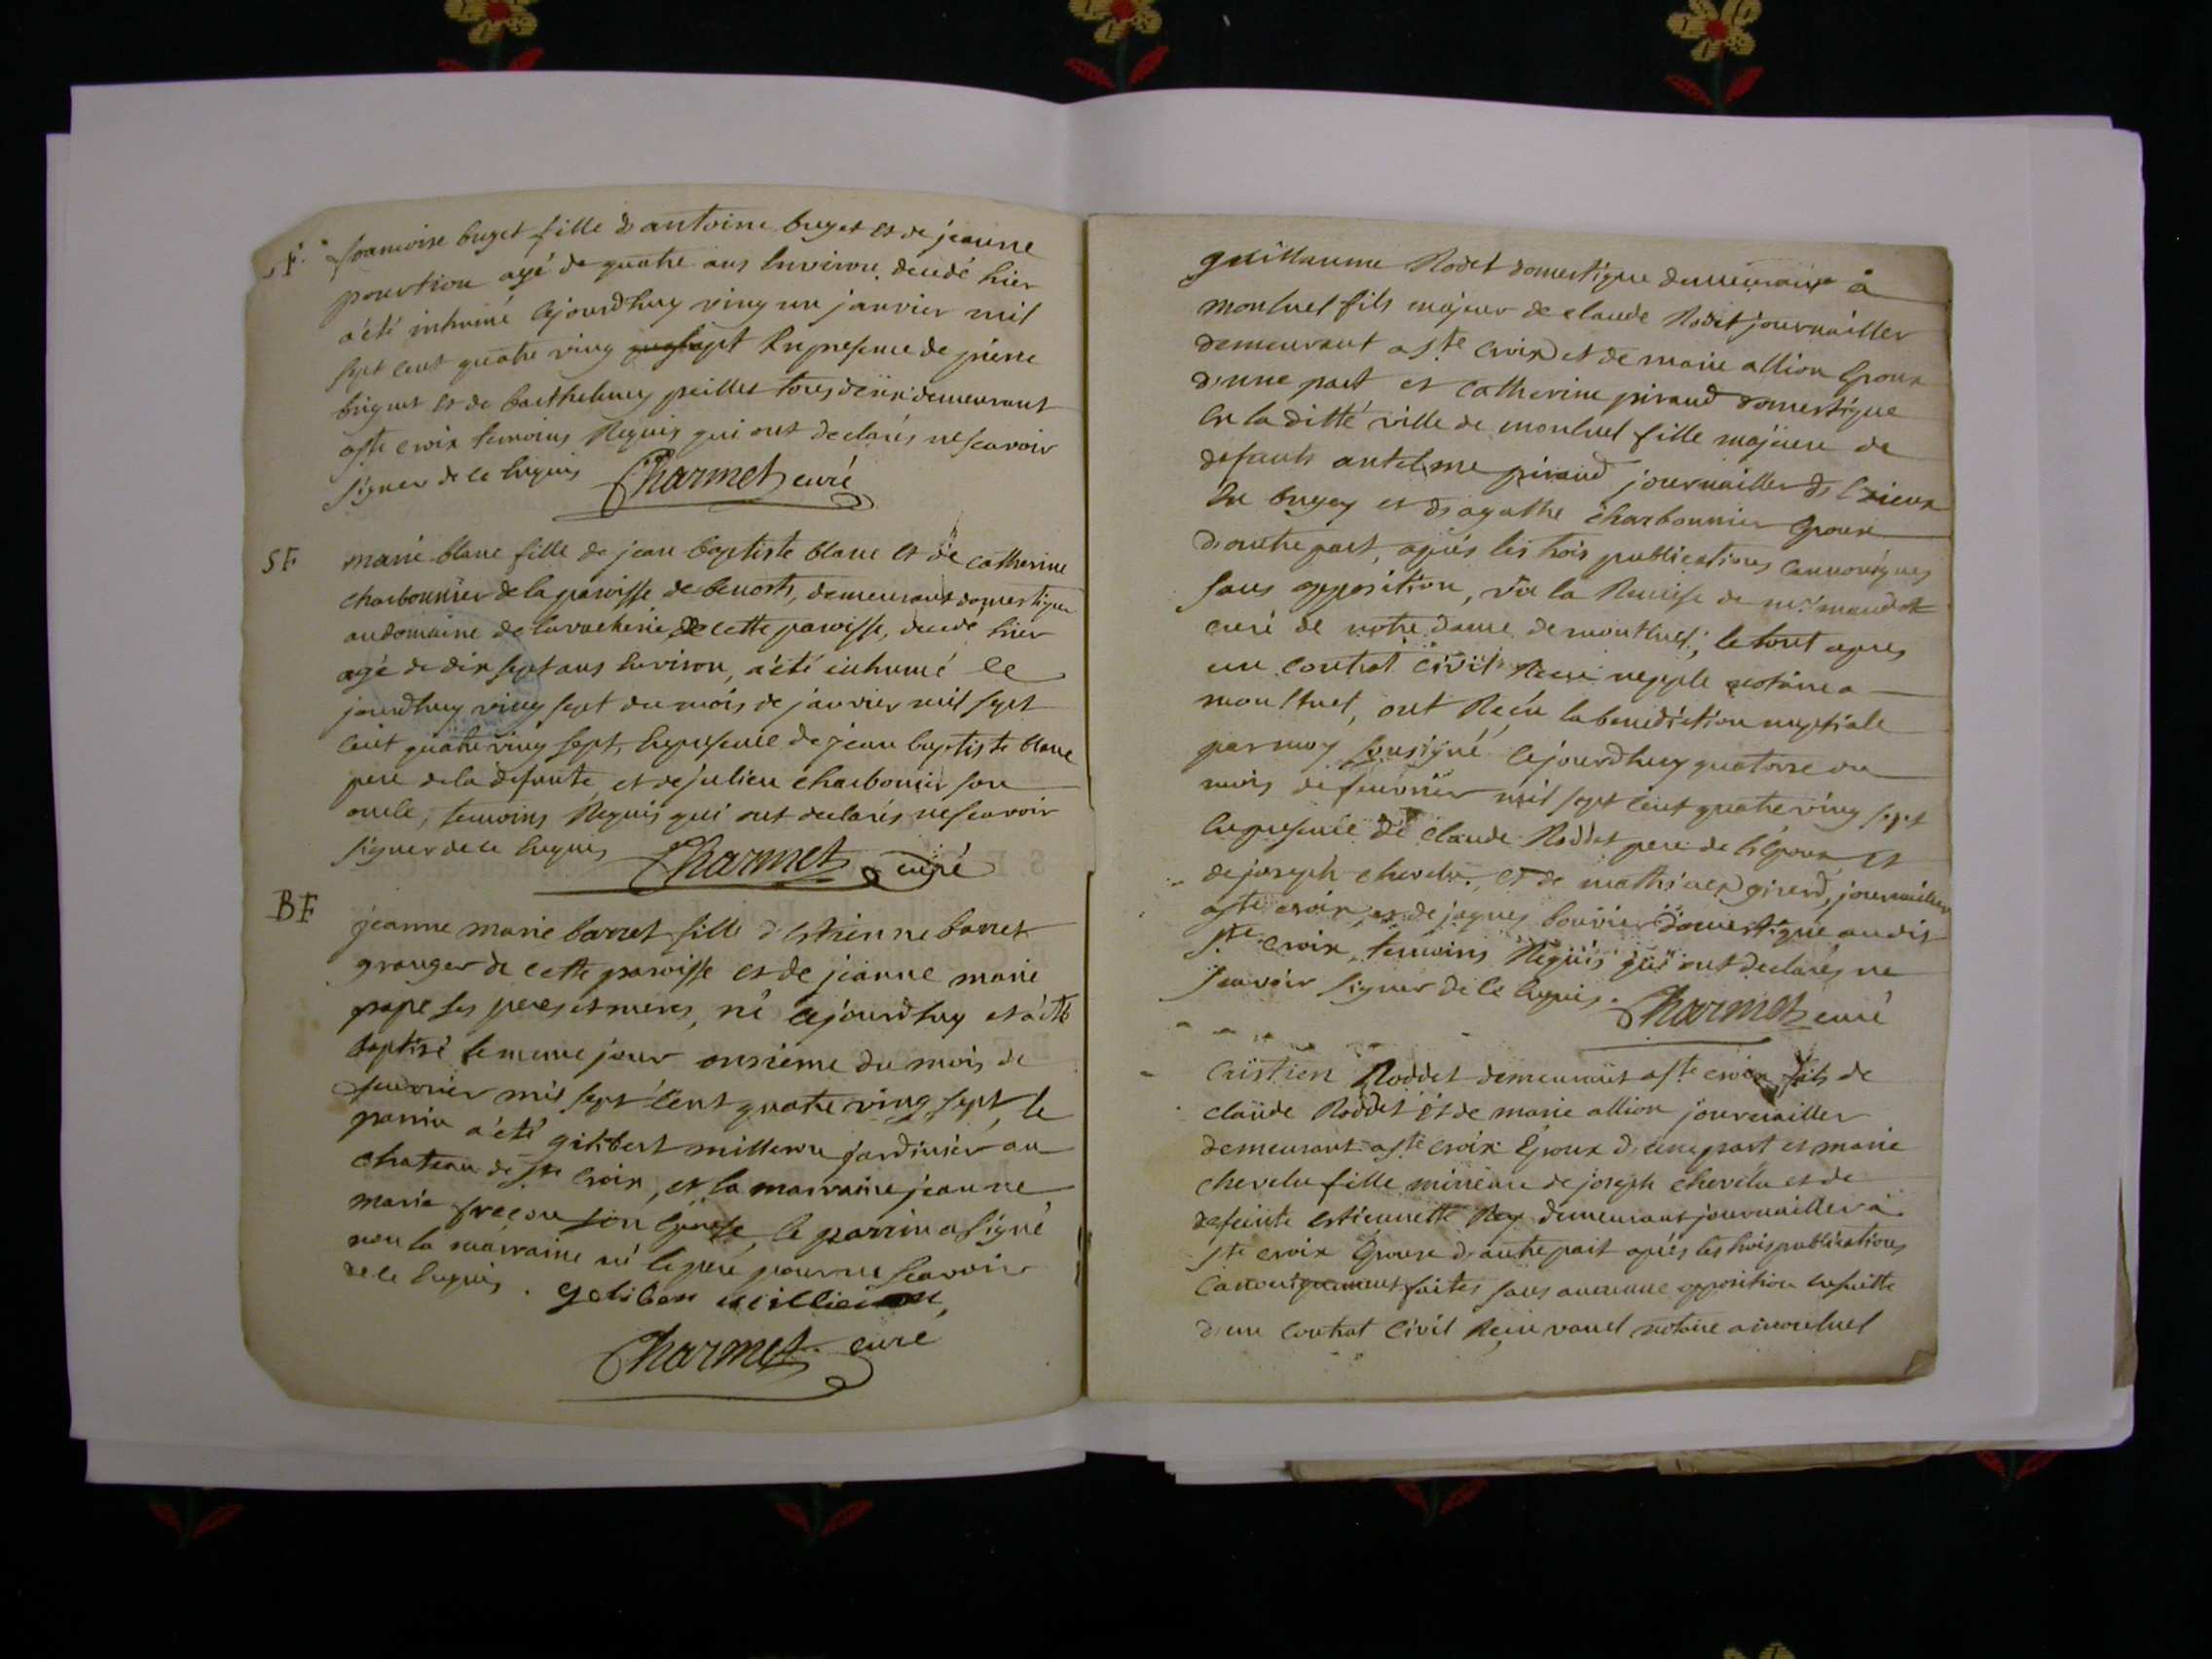 S F. francoise buget fille d antoine buget et de jeanne
pourtion agé de quatre ans Environ decedé hier
a été inhumé cejourdhuy ving un janvier mil
sept cent quatre ving sept En presence de pierre
et de barthelemy peillet tous deux demeurant
a ste croix temoins Requis qui ont declarés ne scavoir
signer de ce Enquis Charmet curé
SF marie blanc fille de jean baptiste blanc et de catherine
charbonnier de la paroisse de benost, demeurant domestique
au domaine de la vacherie de cette paroisse, decedé hier
agé de dix sept ans Environ, a été inhumé ce
jourdhuy ving sept du mois de janvier mil sept
cent quatre ving sept, En presence de jean baptiste blanc
pere de la defunte, et de julien charbonier son
oncle, temoins Requis qui ont declarés ne scavoir
signer de ce Enquis Charmet curé
BF jeanne marie barret fille d'Estienne barret
granger de cette paroisse et de jeanne marie
pape ses peres et meres, né cejourdhuy et a été
baptisé le meme jour onsieme du mois de
fevrier mil sept cent quatre ving sept, le
parrin a été gilibert millieron jardinier au
chateau de ste Croix, et la marraine jeanne
marie son Epouse, le parrin a signé
non la marraine ni le pere pour ne scavoir
de ce Enquis. gelibert
Charmet curé
guillaume Rodet domestique demeurant à
montluel fils majeur de claude Rodet journailler
demeurant a ste croix et de marie allion Epoux
d'une part et catherine piraud domestique
En la ditte ville de monluel fille majeure de
defunts antelme piraud journailler d
En bugey et d'agathe charbonnier Epouse
d'autre part, après les trois publications cannoniques
sans opposition, vu la Remise de mr
curé de notre dame de montluel, le tout apres
un contrat civil Receu nepple notaire a
montluel, ont Recu la benediction nuptiale
par moy sousigné cejourdhuy quatorse du
mois de feuvrier mil sept cent quatre ving sept
En presence de claude Roddet pere de l'Epoux, et
de joseph chevelu, et de mathieu girerd, journailier
a ste croix, et de jaques bouvier domestique audit
ste croix, temoins Requis qui ont declarés ne
scavoir signer de ce Enquis. Charmet curé
Cristien Roddet demeurant a ste croix fils de
claude Roddet et de marie allion journailler
demeurant a ste croix Epoux d'une part et marie
chevelu fille mineure de joseph chevelu et de
defeinte Estiennette Rey demeurant journailler à
ste croix Epouse d'autre part après les trois publications
canoniquement faites sans aucunne opposition ensuitte
d'un contrat civil Reçu vanel notaire a monluel